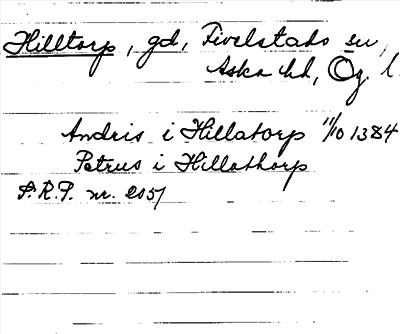 Hilltorp, gd, Fivelstads sn,
Aska hd, Ög. l.
Andris i Hillatorp 11/10 1384
Petrus i Hillathorp
S.R.P. nr. 2051